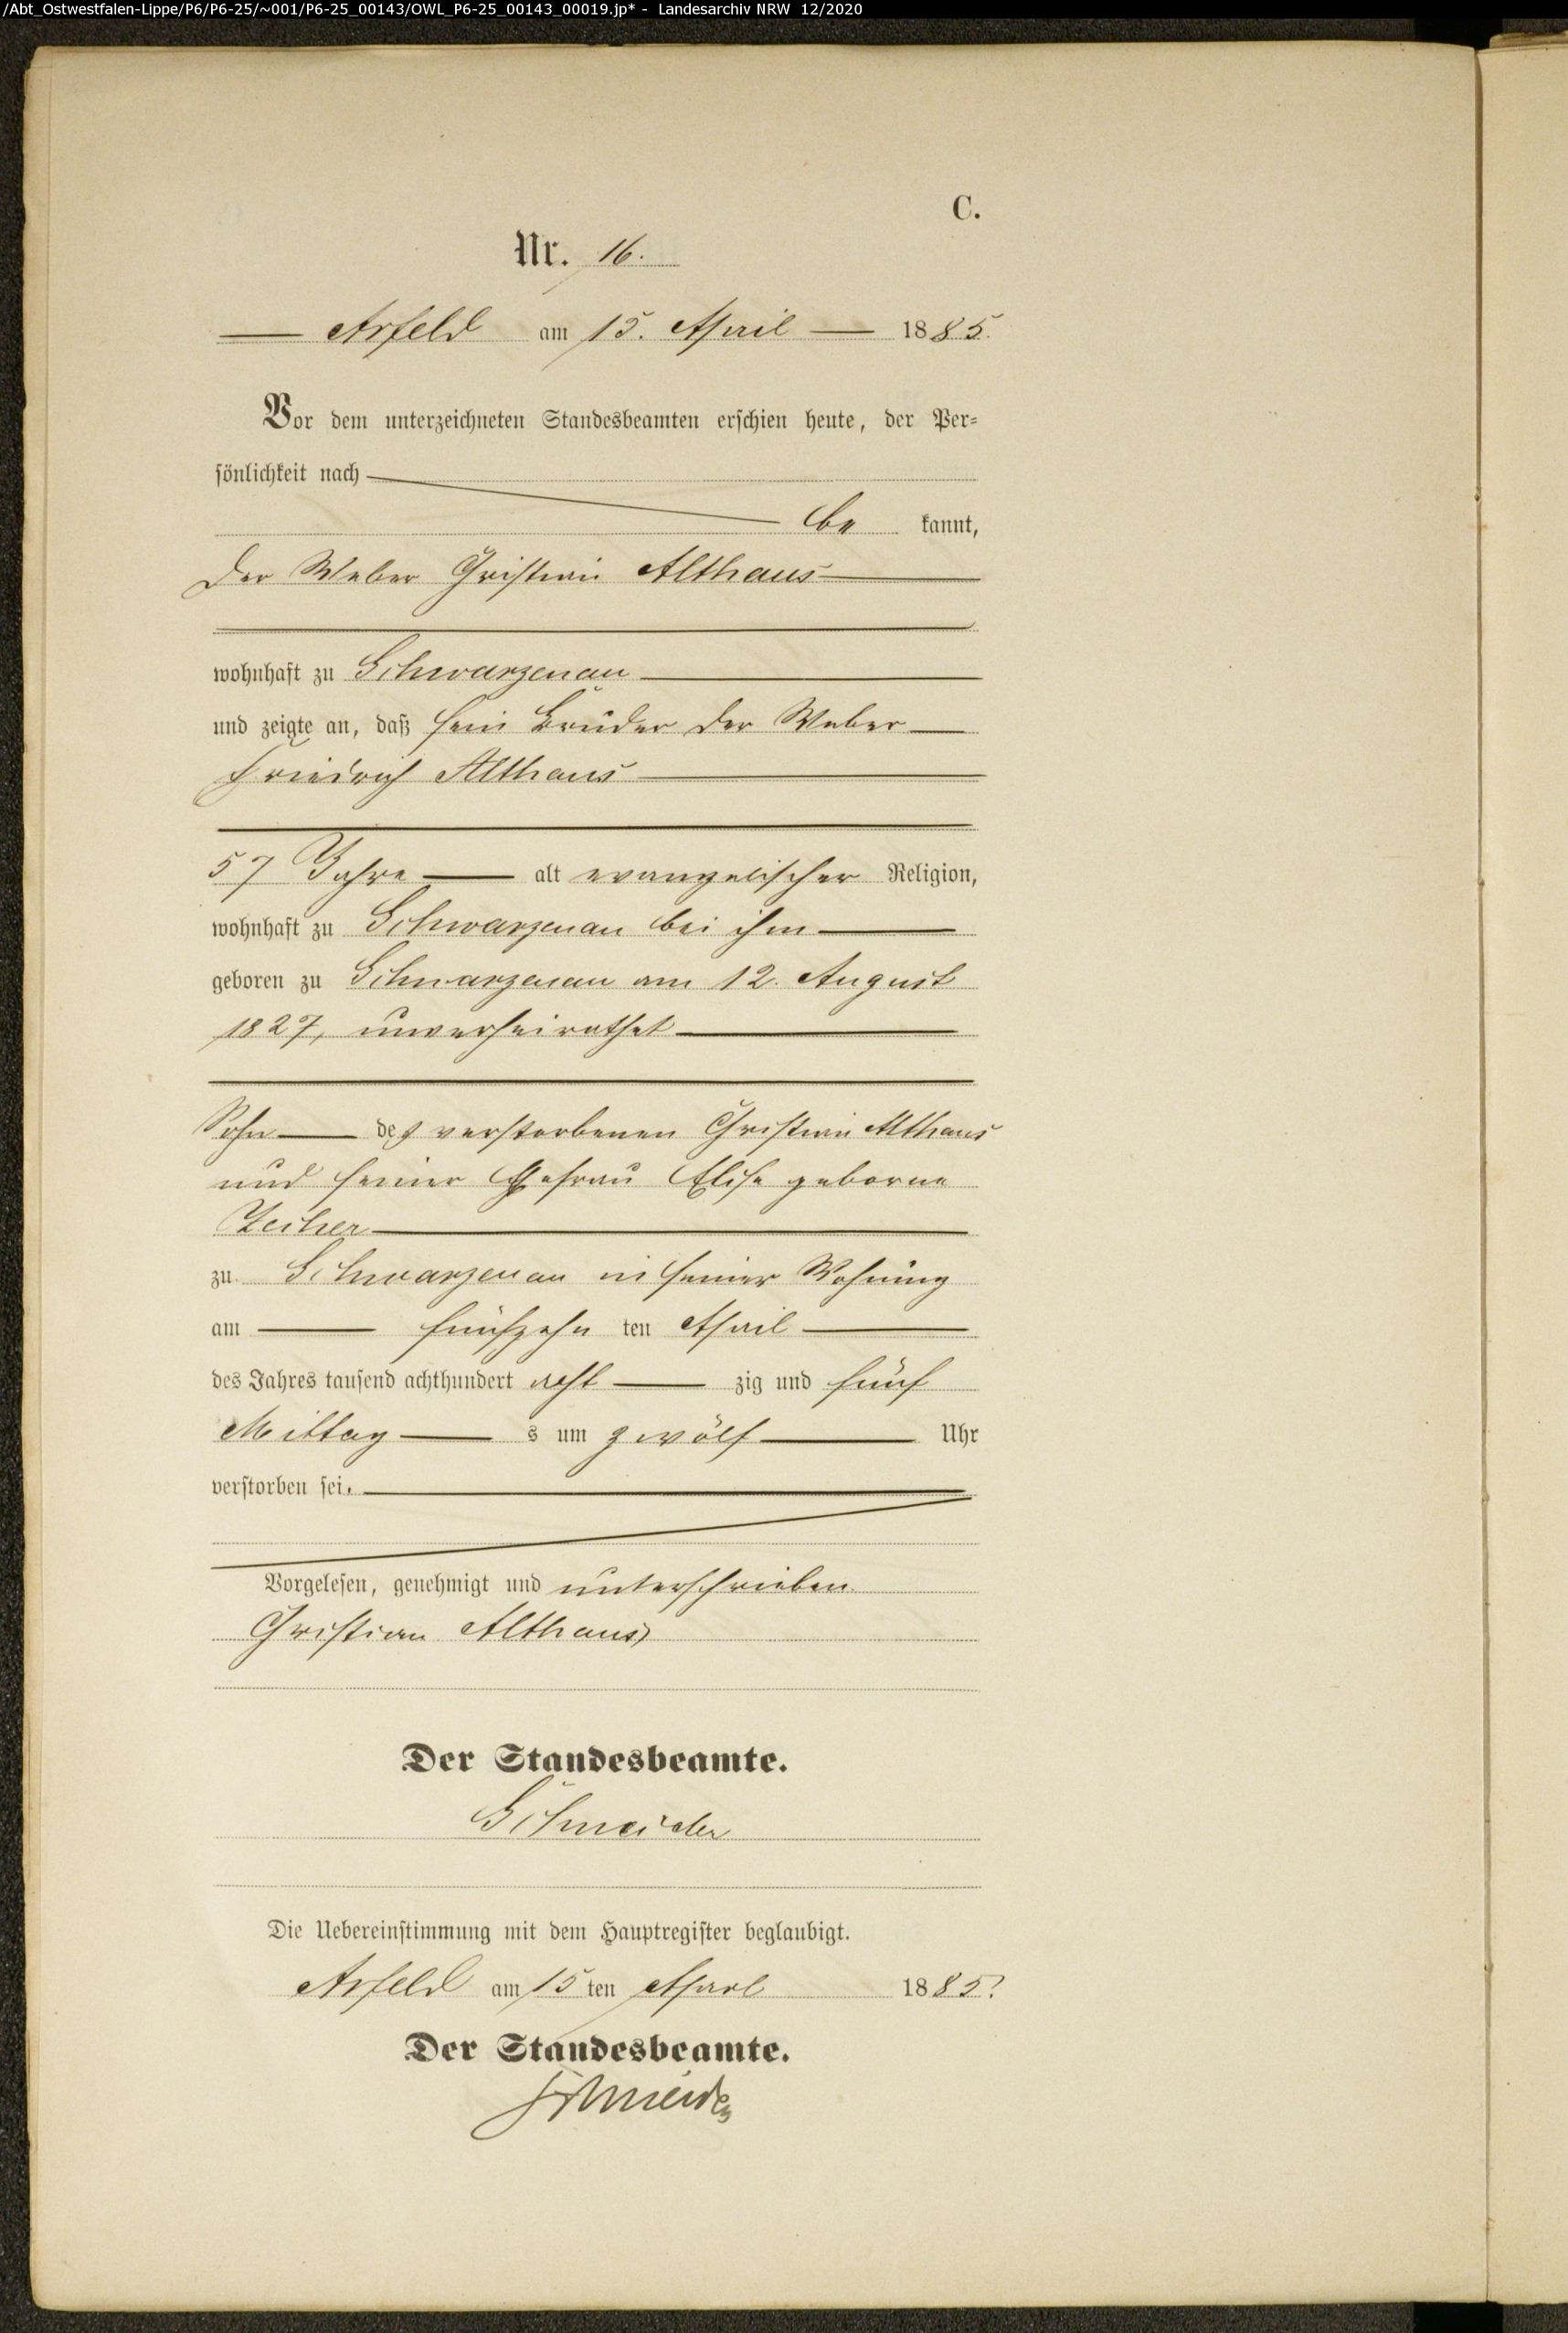 /Abt_Ostwestfalen-Lippe/P6/P6-25/~001/P6-25_00143/OWL_P6-25_00143_00019.jp* - Landesarchiv NRW 12/2020
C.
Nr. 16.
Arfeld am 15. April 1885.
Vor dem unterzeichneten Standesbeamten erschien heute, der Per-
sönlichkeit nach
be kannt,
der Weber Christian Althaus
wohnhaft zu Schwarzenau
und zeigte an, daß sein Bruder der Weber
Friedrich Althaus
57 Jahre alt evangelischer Religion,
wohnhaft zu Schwarzenau bei ihm
geboren zu Schwarzenau am 12. August
1827, unverheirathet
Sohn des verstorbenen Christian Althaus
und seiner Ehefrau Elise geborne
zu Schwarzenau in seiner Wohnung
am fünfzehn ten April
des Jahres tausend achthundert acht zig und fünf
Mittag s um zwölf Uhr
verstorben sei.
Vorgelesen, genehmigt und unterschrieben
Christian Althaus
Der Standesbeamte.
Schneider
Die Uebereinstimmung mit dem Hauptregister beglaubigt.
Arfeld am 15 ten April 1885.
Der Standesbeamte.
Schneider